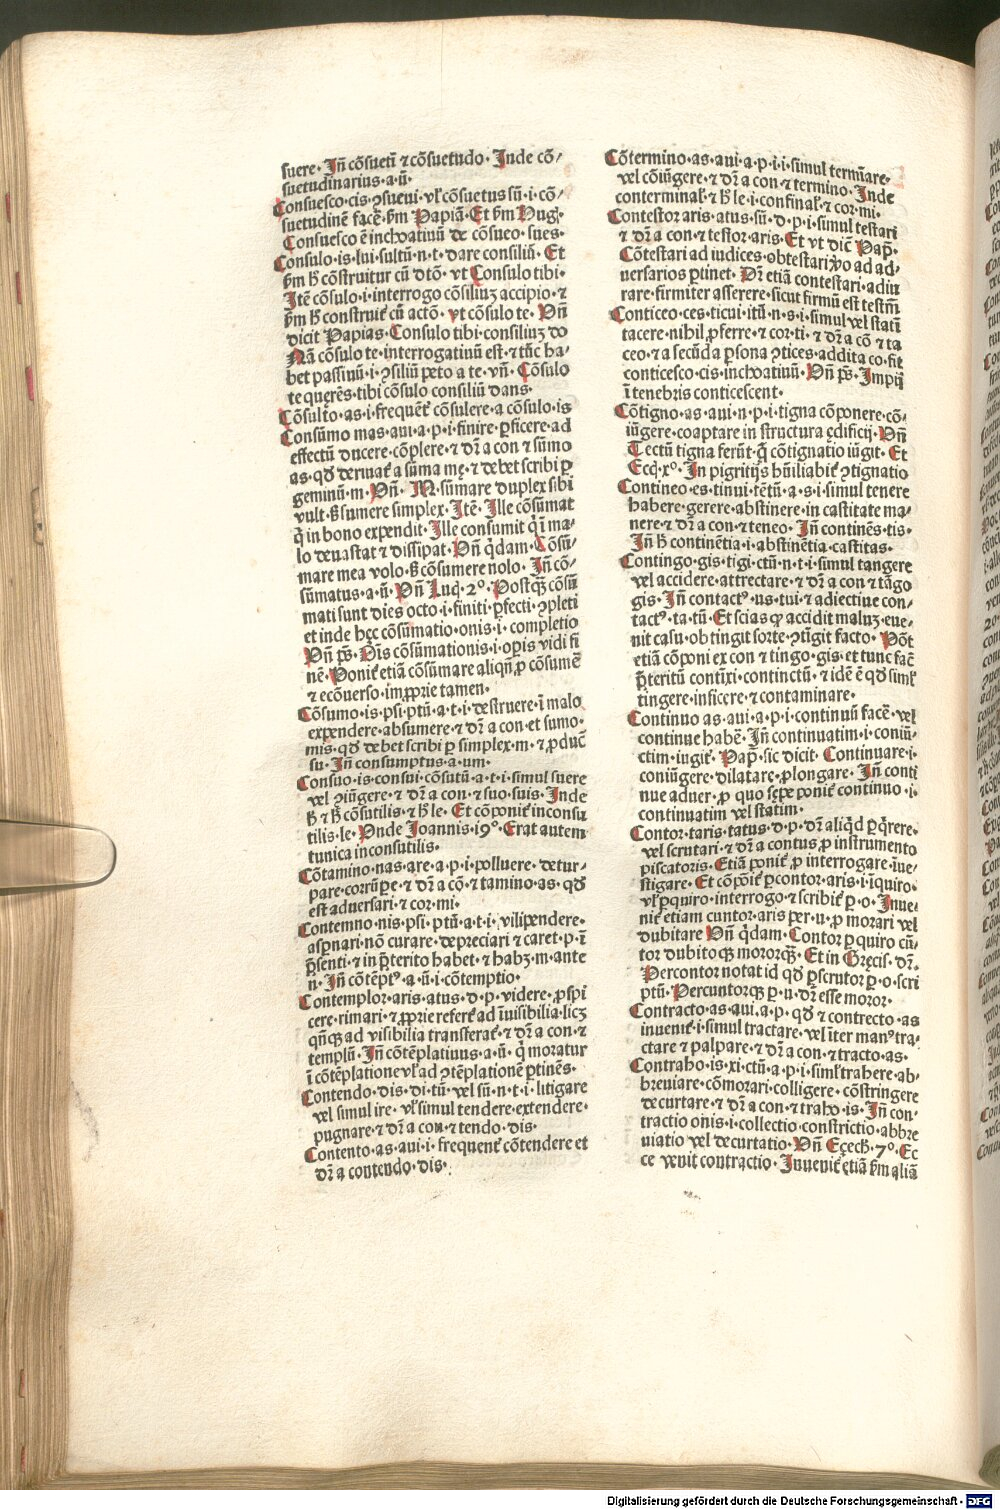 suere· Iñ cõsuetꝰ ⁊ cõsuetudo· Inde cõ-
suetudinarius·a·ũ·
Consuesco·cis·ꝯsueui·vl̓ cõsuetus sũ·i·cõ-
suetudinẽ facẽ· ẜm Papiã· Et ẜm Hugl̓·
Consuesco ẽ inchoatiuũ de cõsueo·sues·
Consulo·is·lui·sultũ·n·t·dare consiliũ· Et
ẜm h̓ cõstruitur cũ dtõ· vt Consulo tibi·
Itẽ cõsulo·i·interrogo cõsiliuꝫ accipio·⁊
ẜm h̓ construit̃ cũ actõ· vt cõsulo te· Vñ
dicit Papias· Consulo tibi·consiliuꝫ do
Nã cõsulo te·interrogatiuũ est·⁊ tũc ha-
bet passiuũ·i·ꝯsiliũ peto a te·vñ· Cõsulo
te querẽs·tibi cõsulo consiliũ dans·
Cõsulto·as·i·frequẽt̃ cõsulere·a cõsulo·is
Consũmo mas·aui·a·p·i·finire·ꝑficere·ad
effectũ ducere·cõplere·⁊ dr̃ a con ⁊ sũmo
as·qð deriuat̃ a sũma mę·⁊ debet scribi ꝑ
geminũ·m· Vñ· M·sũmare duplex sibi
vult·ẜ sumere simplex· Itẽ· Ille cõsũmat
q̇ in bono expendit· Ille consumit q̇ ĩ ma-
lo deuastat ⁊ dissipat· Vñ q̇dam· Cõsũ-
mare mea volo·ẜ cõsumere nolo· Iñ cõ-
sũmatus·a·ũ· Vñ Luc̣·2º· Postq̃ȝ cõsũ
mati sunt dies octo·i·finiti ꝑfecti·ꝯpleti
et inde hęc cõsũmatio·onis·i·completio
Vñ p̃s· Oĩs cõsũmationis·i·oꝑis vidi fi
nẽ· Ponit̃ etiã cõsũmare aliqñ ꝓ cõsumẽ
⁊ ecõuerso·imꝓprie tamen·
Cõsumo·is·psi·ptũ·a·t·i·destruere·ĩ malo
expendere·absumere·⁊ dr̃ a con·et sumo·
mis·qð debet scribi ꝑ simplex·m·⁊ ꝓducẽ
su· Iñ consumptus·a·um·
Consuo·is·consui·cõsutũ·a·t·i·simul suere
vel ꝯiũgere·⁊ dr̃ a con·⁊ suo·suis· Inde
h̓ ⁊ h̓ cõsutilis·⁊ h̓ le· Et cõponit̃ inconsu
tilis·le· Vnde Joannis·19º· Erat autem
tunica inconsutilis·
Cõtamino·nas·are·a·p·i·polluere·detur-
pare·corrũpere·⁊ dr̃ a cõ·⁊ tamino·as·qð
est aduersari·⁊ cor·mi·
Contemno·nis·psi·ptũ·a·t·i·vilipendere·
asꝑnari·nõ curare·depreciari ⁊ caret·p·ĩ
p̃senti·⁊ in p̃terito habet·⁊ habꝫ·m·ante
n· Iñ cõtẽptꝰ·a·ũ·i·cõtemptio·
Contemplor·aris·atus·d·p·videre·ꝓspi
cere·rimari·⁊ ꝓprie refert̃ ad ĩuisibilia·licꝫ
qñqȝ ad visibilia transferat̃·⁊ dr̃ a con·⁊
templũ· Iñ cõtẽplatiuus·a·ũ· q̇ moratur
ĩ cõtẽplatione vl̓ ad ꝯtẽplationẽ ꝑtinẽs·
Contendo·dis·di·tũ·vel sũ·n·t·i·litigare
vel simul ire·vl̓ simul tendere·extendere·
pugnare·⁊ dr̃ a con·⁊ tendo·dis·
Contento·as·aui·i·frequent̃ cõtendere et
dr̃ a contendo·dis·
Cõtermino·as·aui·a·p·i·i·simul termĩare·
vel cõiũgere·⁊ dr̃ a con·⁊ termino· Inde
conterminal̓·⁊ h̓ le·i·confinal̓·⁊ cor·mi·
Contestor aris·atus·sũ·d·p·i·simul testari
⁊ dr̃ a con·⁊ testor·aris· Et vt dic̃ Pap̃·
Cõtestari ad iudices·obtestari ꝟo ad ad-
uersarios ꝑtinet· Dr̃ etiã contestari·adiu
rare·firmiter asserere·sicut firmũ est testm̃
Conticeo·ces·ticui·itũ·n·s·i·simul vel statĩ
tacere·nihil ꝓferre·⁊ cor·ti·⁊ dr̃ a cõ ⁊ ta
ceo·⁊ a secũda ꝑsona ꝯtices·addita co·fit
conticesco·cis·inchoatiuũ· Vñ p̃s· Impij
ĩ tenebris conticescent·
Cõtigno·as·aui·n·p·i·tigna cõponere·cõ-
iũgere·coaptare in structura ędificij· Vñ
Tectũ tigna ferũt·q̃ cõtignatio iũgit· Et
Eccl̓·xº· In pigritijs hũiliabit̃ ꝯtignatio
Contineo·es·tinui·tẽtũ·a·s·i·simul tenere
habere·gerere·abstinere·in castitate ma-
nere·⁊ dr̃ a con·⁊ teneo· Iñ continẽs·tis·
Iñ h̓ continẽtia·i·abstinẽtia·castitas·
Contingo·gis·tigi·ctũ·n·t·i·simul tangere
vel accidere·attrectare·⁊ dr̃ a con·⁊ tãgo
gis· Iñ contactꝰ·us·tui·⁊ adiectiue con-
tactꝰ·ta·tũ· Et scias qȝ accidit maluꝫ·eue-
nit casu·obtingit sorte·ꝯtĩgit facto· Põt
etiã cõponi ex con ⁊ tingo·gis·et tunc facẽ
p̃teritũ contĩxi·continctũ·⁊ idẽ ẽ qð siml̓
tingere·inficere·⁊ contaminare·
Continuo as·aui·a·p·i·continuũ facẽ·vel
continue habẽ· Iñ continuatim·i·coniũ-
ctim·iugit̃· Pap̃·sic dicit· Continuare·i·
coniũgere·dilatare·ꝓlongare· Iñ conti
nue aduer·ꝓ quo sępe ponit̃ continuo·i·
continuatim vel statim·
Contor·taris·tatus·d·p·dr̃ aliq̇d ꝑq̇rere·
vel scrutari·⁊ dr̃ a contus·ꝓ instrumento
piscatoris· Etiã ponit̃ ꝓ interrogare·ĩue-
stigare· Et cõponit̃ ꝑcontor·aris·i·ĩquiro·
vl̓ ꝑquiro·interrogo·⁊ scribit̃ ꝑ·o· Inue-
nit̃ etiam cuntor·aris per·u·ꝓ morari vel
dubitare Vñ q̇dam· Contor ꝑquiro cũ-
tor dubitoqȝ mororqȝ· Et in Gręcis·dr̃·
Percontor notat id qð ꝑscrutor ꝑ·o·scri
ptũ· Percuntorqȝ ꝑ·u·dr̃ esse moror·
Contracto·as·aui·a·p·qð ⁊ contrecto·as
inuenit̃·i·simul tractare·vel ĩter manꝰ tra-
ctare ⁊ palpare·⁊ dr̃ a con·⁊ tracto·as·
Contraho·is·xi·ctũ·a·p·i·siml̓ trahere·ab-
breuiare·cõmorari·colligere·cõstringere
decurtare·⁊ dr̃ a con·⁊ traho·is· Iñ con-
tractio onis·i·collectio·constrictio·abbre
uiatio vel decurtatio· Vñ Eçech·7º· Ec
ce venit contractio· Inuenit̃ ętiã ẜm aliã
Digitalisierung gefördert durch die Deutsche Forschungsgemeinschaft - DFG